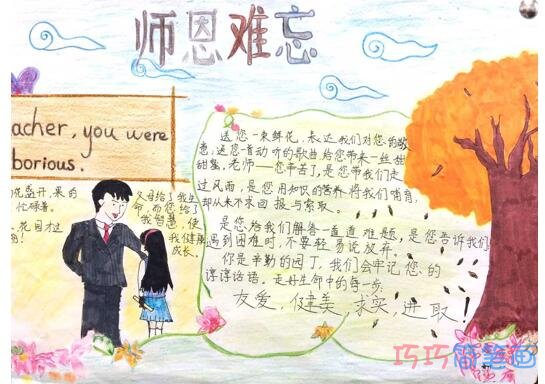 师恩难忘
acher, you were
borious.
花盛开,果的
忙碌着。
花园才这
父母给了我生
命,而您给了
我智慧,使
我健康
成长。
送您一束鲜花,表达我们对您的敬
意;送您一首动听的歌曲,给您带来一丝甜
甜蜜,老师——您辛苦了,是您带我们走
过风雨,是您用知识的营养将我们哺育,
却从来不求回报与索取。
是您给我们解答一道道难题,是您告诉我们
遇到困难时,不要轻易说放弃。
你是辛勤的园丁,我们会牢记您的
谆谆话语。走好生命中的每一步
友爱,健美,求实,进取!
巧巧简笔画